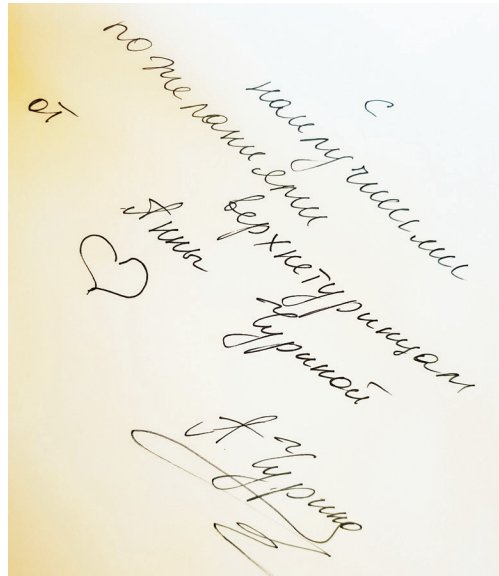 С
наилучшими
пожеланиями
верхнетуринцам
от
Анны
Чуриной
А Чурина